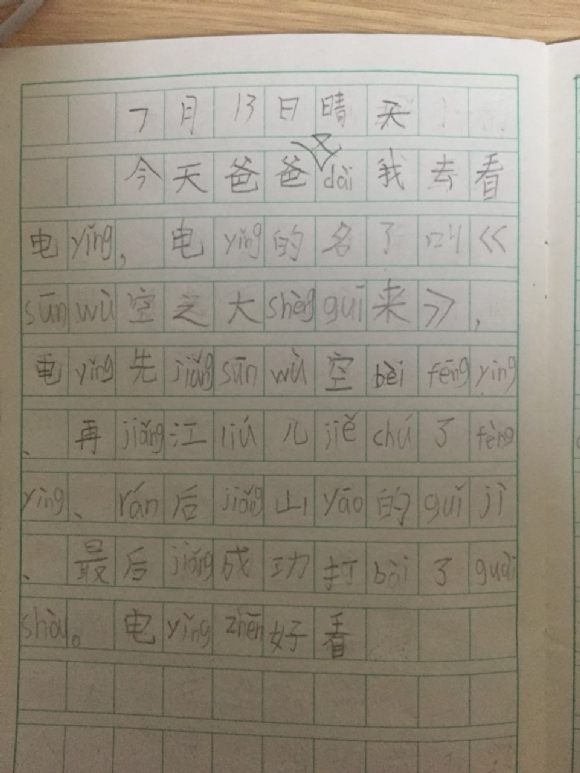 7月13日晴天
今天爸爸又dài我去看
电yǐng，电yǐng的名子叫《
sūn wù空之大shèng guī来》，
电yǐng先jiǎng sūn wù空bèi fēng yìn
、再jiǎng江liú儿jiě chú了fēng
yìn、rán后jiǎng山yāo的guǐ jì
、最后jiǎng成功打bài了guài
shòu。电yǐng zhēn好看